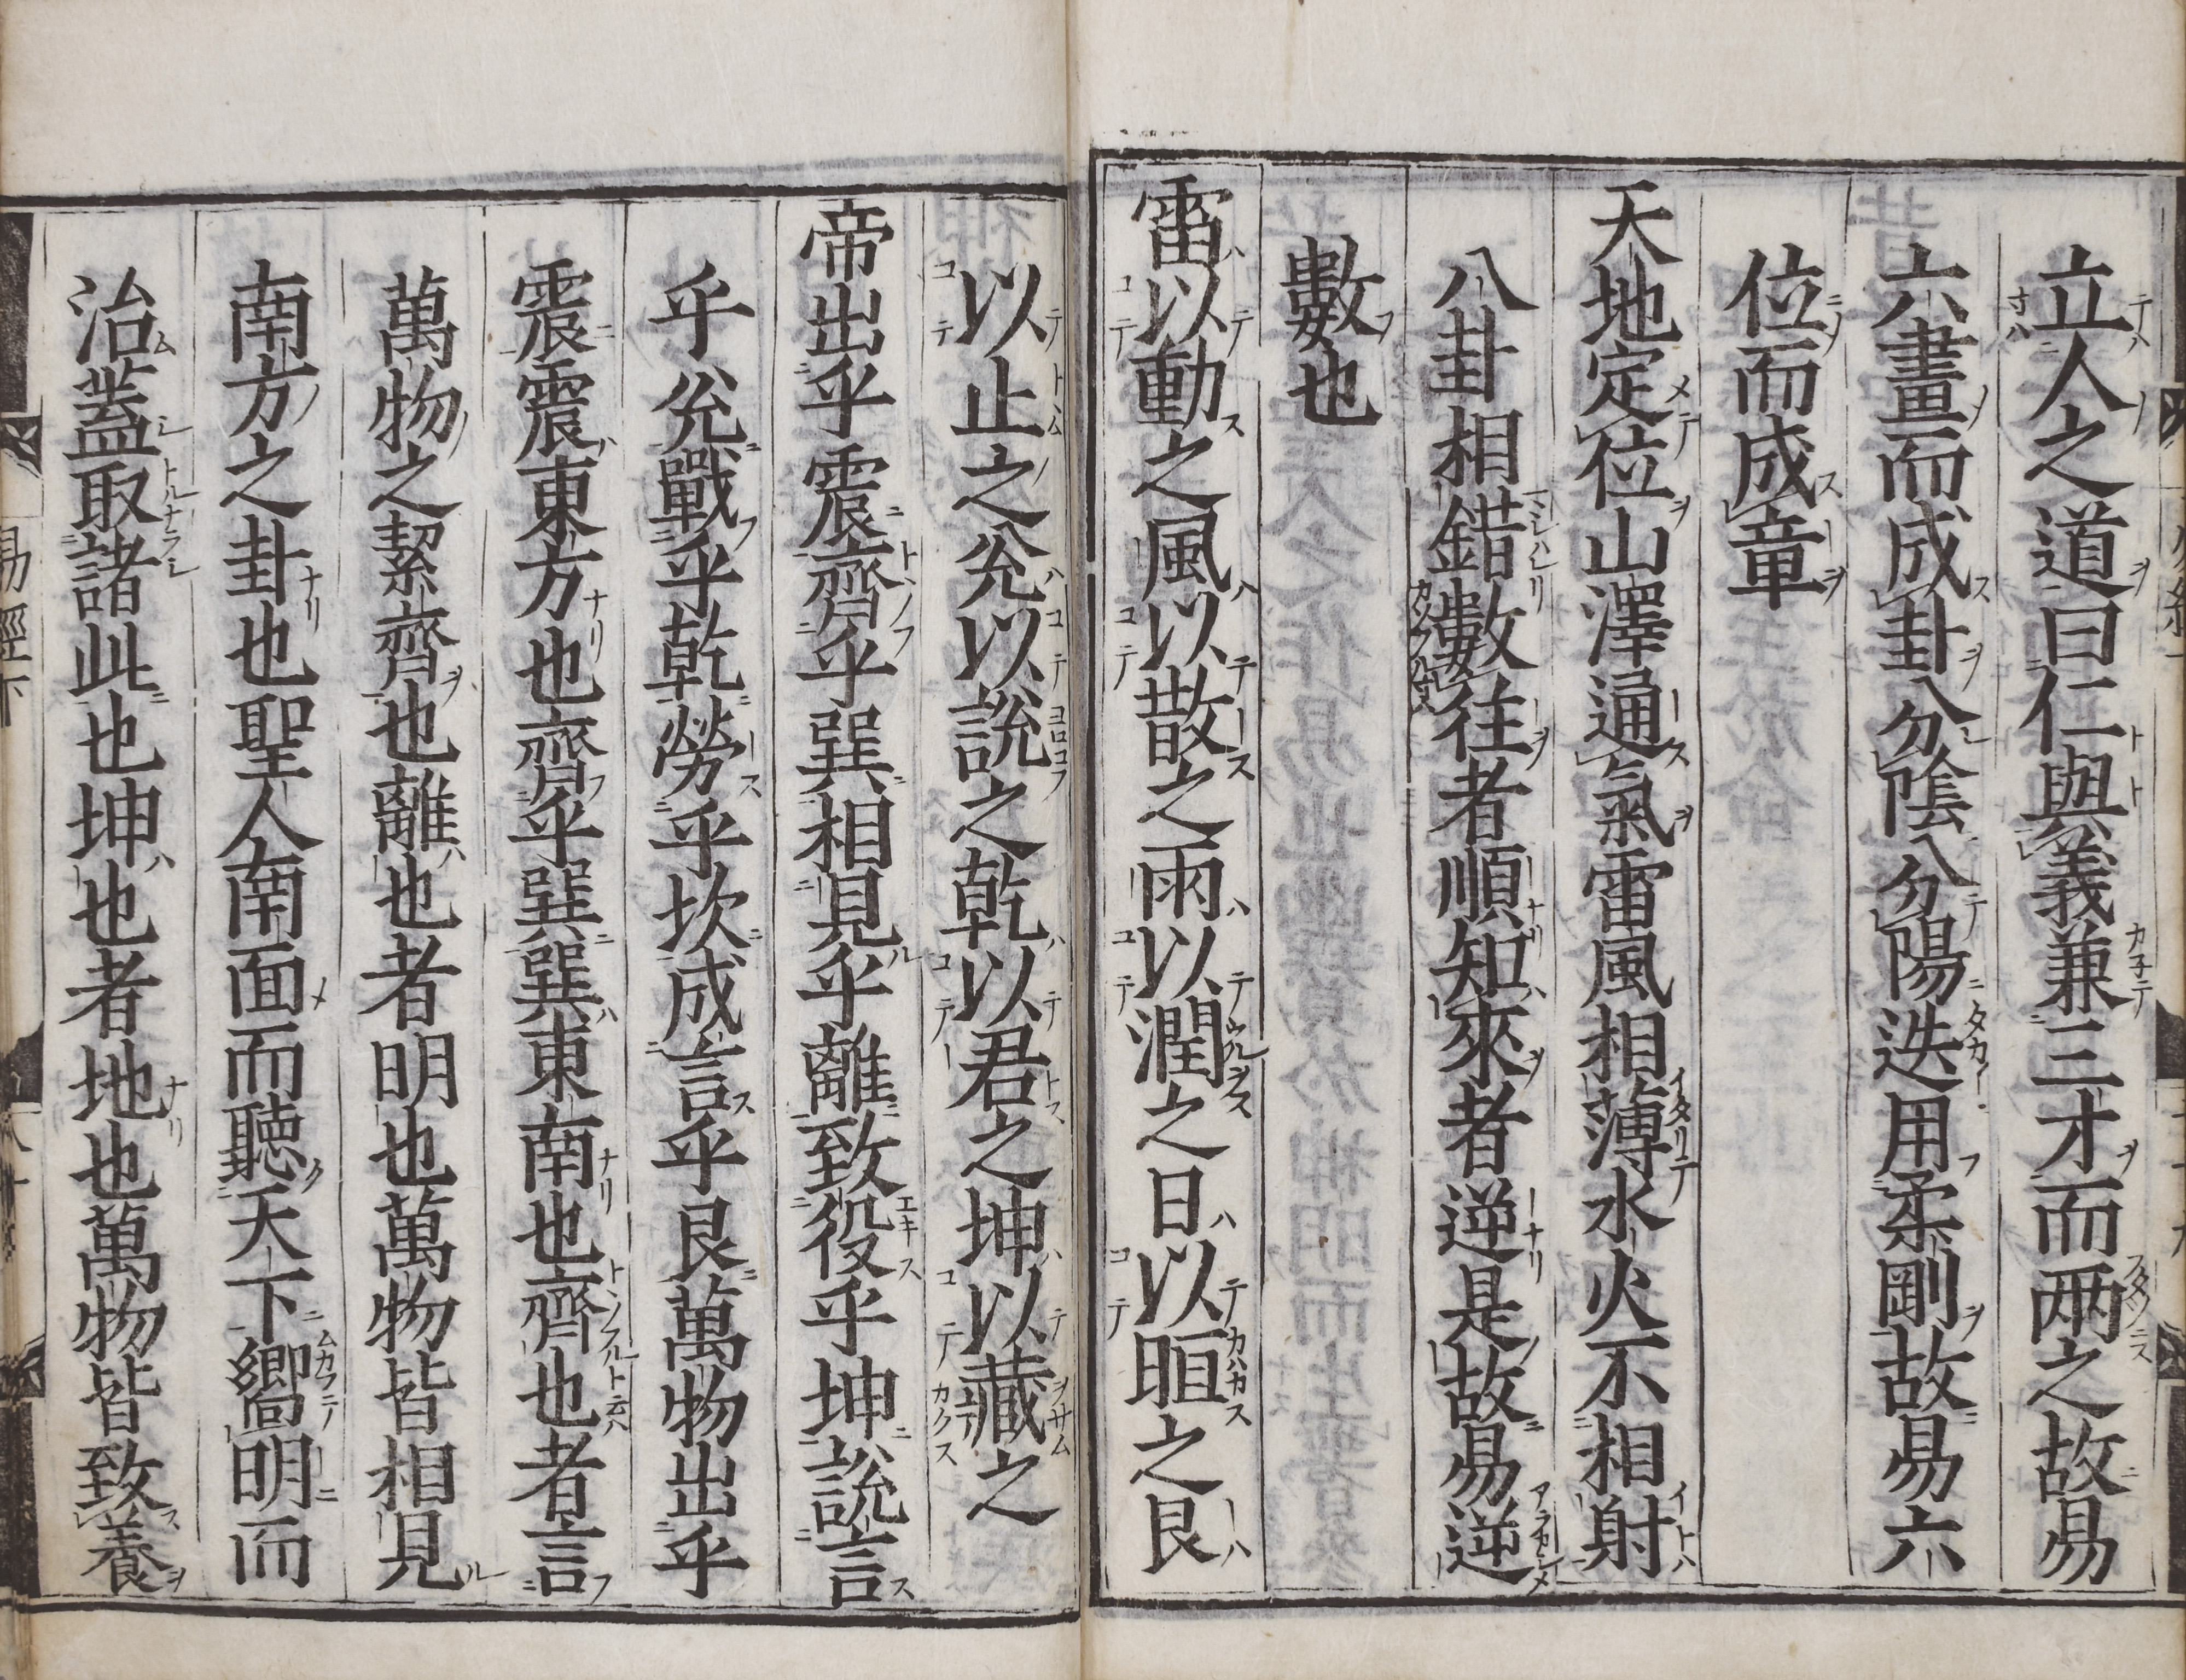 立人之道曰仁與義兼三才而兩之故易
六畫而成卦分陰分陽迭用柔剛故易六
位而成章
天地定位山澤通氣雷風相薄水火不相射
八卦相錯數往者順知來者逆是故易逆
數也
雷以動之風以散之雨以潤之日以晅之艮
以止之兊以說之乾以君之坤以藏之
帝出乎震齊乎巽相見乎離致役乎坤說言
乎兊戰乎乾勞乎坎成言乎艮萬物出乎
震震東方也齊乎巽巽東南也齊也者言
萬物之絜齊也離也者明也萬物皆相見
南方之卦也聖人南面而聽天下嚮明而
治蓋取諸此也坤也者地也萬物皆致養
易經下